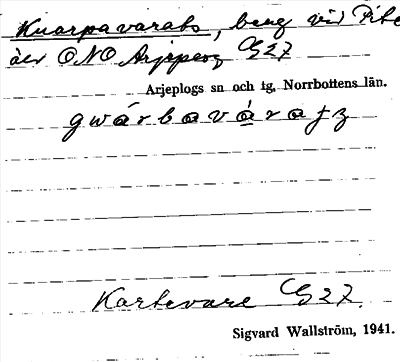 Kuarpavarats, berg vid Pite
älv ONO Arjeplog G27
Arjeplogs sn och tg, Norrbottens län.
Kartevare G27.
Sigvard Wallström, 1941.